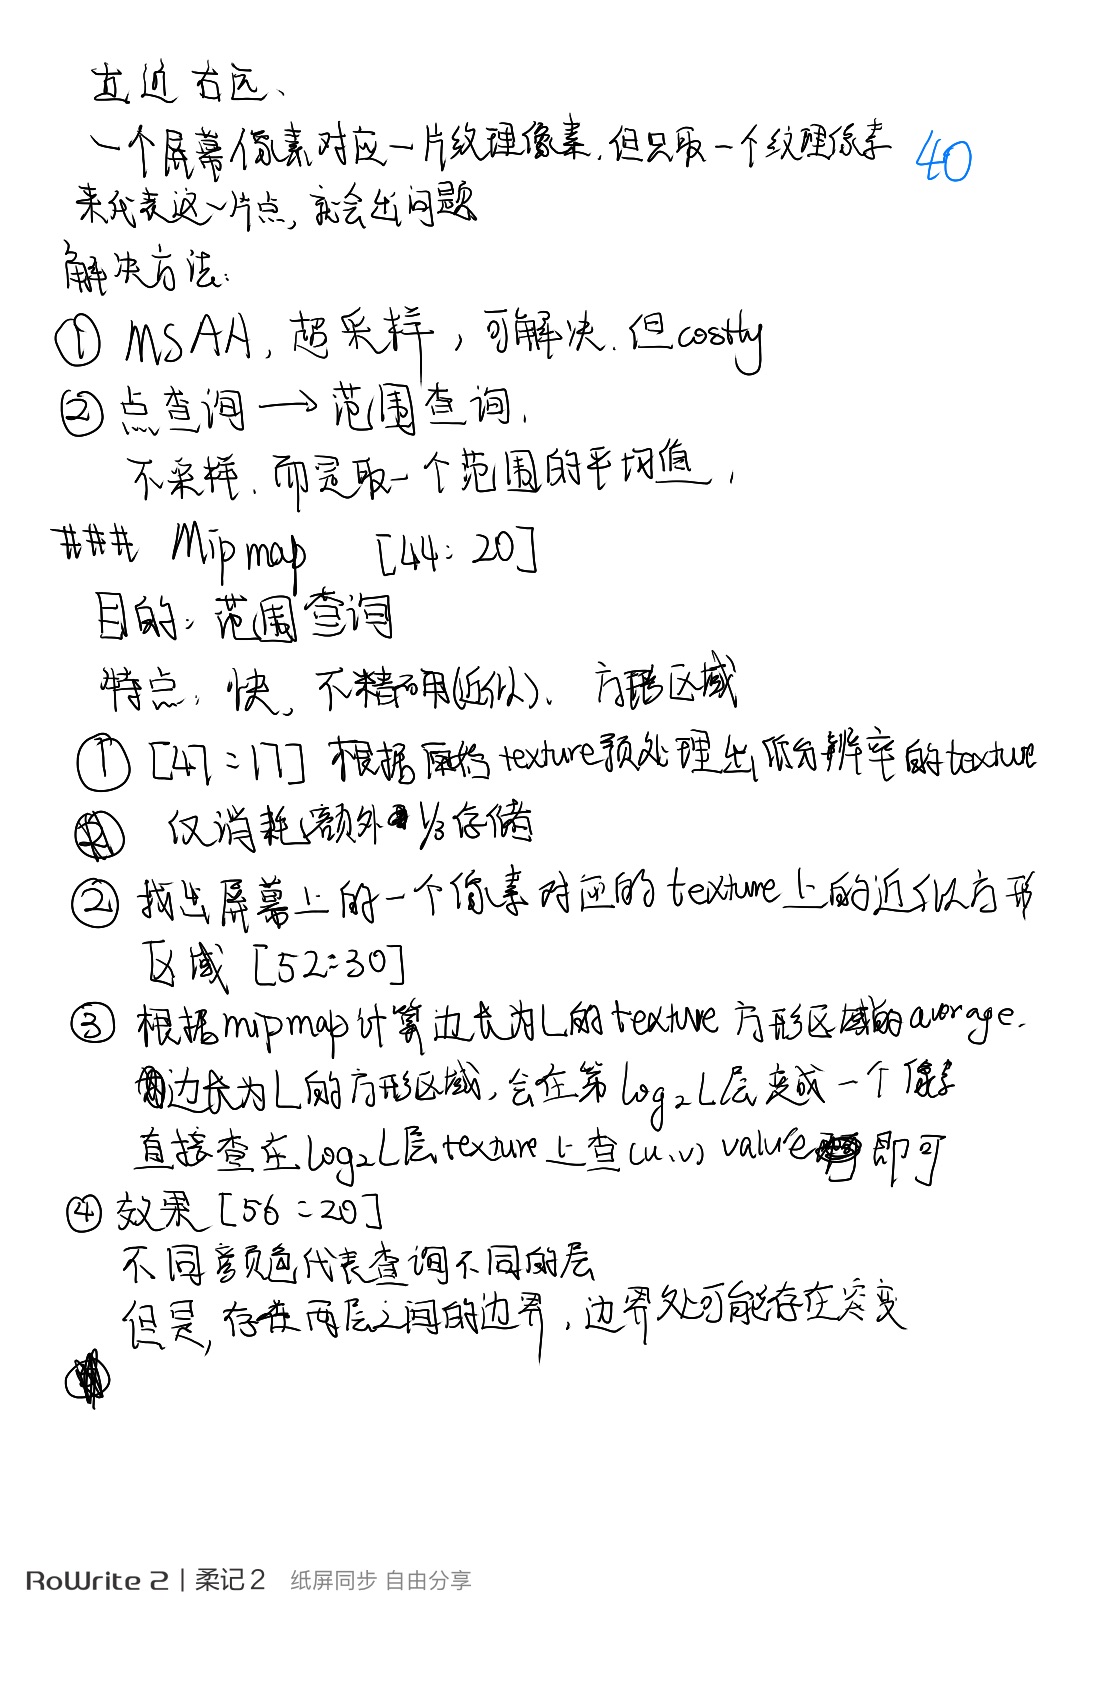 左近右远、
一个屏幕像素对应一片纹理像素.但只取一个纹理像素 40
来代表这一片点,就会出问题
解决方法:
① MSAA,超采样,可解决.但costly
② 点查询→范围查询.
不采样.而是取一个范围的平均值,
### Mipmap [44:20]
目的:范围查询
特点:快,不精确(近似)、方形区域
① [47:17] 根据原始texture预处理出低分辨率的texture
仅消耗额外1/3存储
② 找出屏幕上的一个像素对应的texture上的近似方形
区域 [52:30]
③ 根据mipmap计算边长为L的texture方形区域的average.
边长为L的方形区域,会在第log₂L层变成一个像素
直接查在log₂L层texture上查(u,v) value即可
④ 效果 [56:20]
不同颜色代表查询不同的层
但是,存在两层之间的边界,边界处可能存在突变
RoWrite 2 | 柔记2 纸屏同步 自由分享